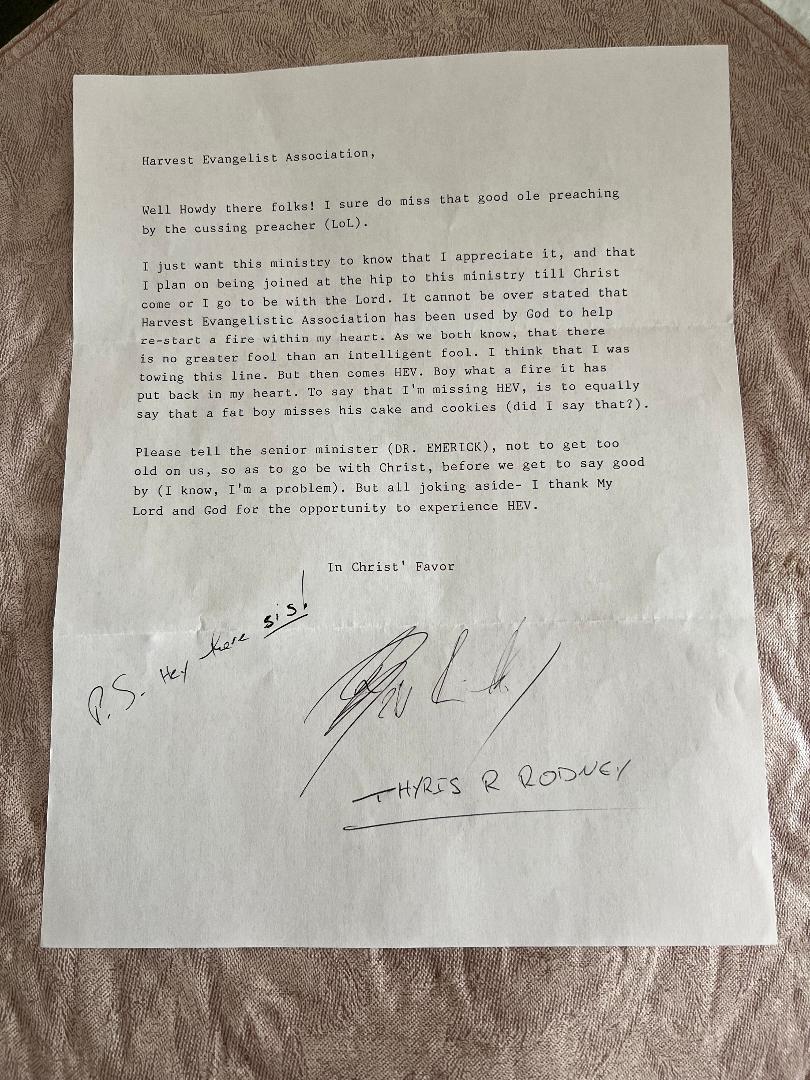 Harvest Evangelist Association,
Well Howdy there folks! I sure do miss that good ole preaching
by the cussing preacher (LoL).
I just want this ministry to know that I appreciate it, and that
I plan on being joined at the hip to this ministry till Christ
come or I go to be with the Lord. It cannot be over stated that
Harvest Evangelistic Association has been used by God to help
re-start a fire within my heart. As we both know, that there
is no greater fool than an intelligent fool. I think that I was
towing this line. But then comes HEV. Boy what a fire it has
put back in my heart. To say that I'm missing HEV, is to equally
say that a fat boy misses his cake and cookies (did I say that?).
Please tell the senior minister (DR. EMERICK), not to get too
old on us, so as to go be with Christ, before we get to say good
by (I know, I'm a problem). But all joking aside- I thank My
Lord and God for the opportunity to experience HEV.
In Christ' Favor
P.S. Hey there sis!
THYRIS R RODNEY